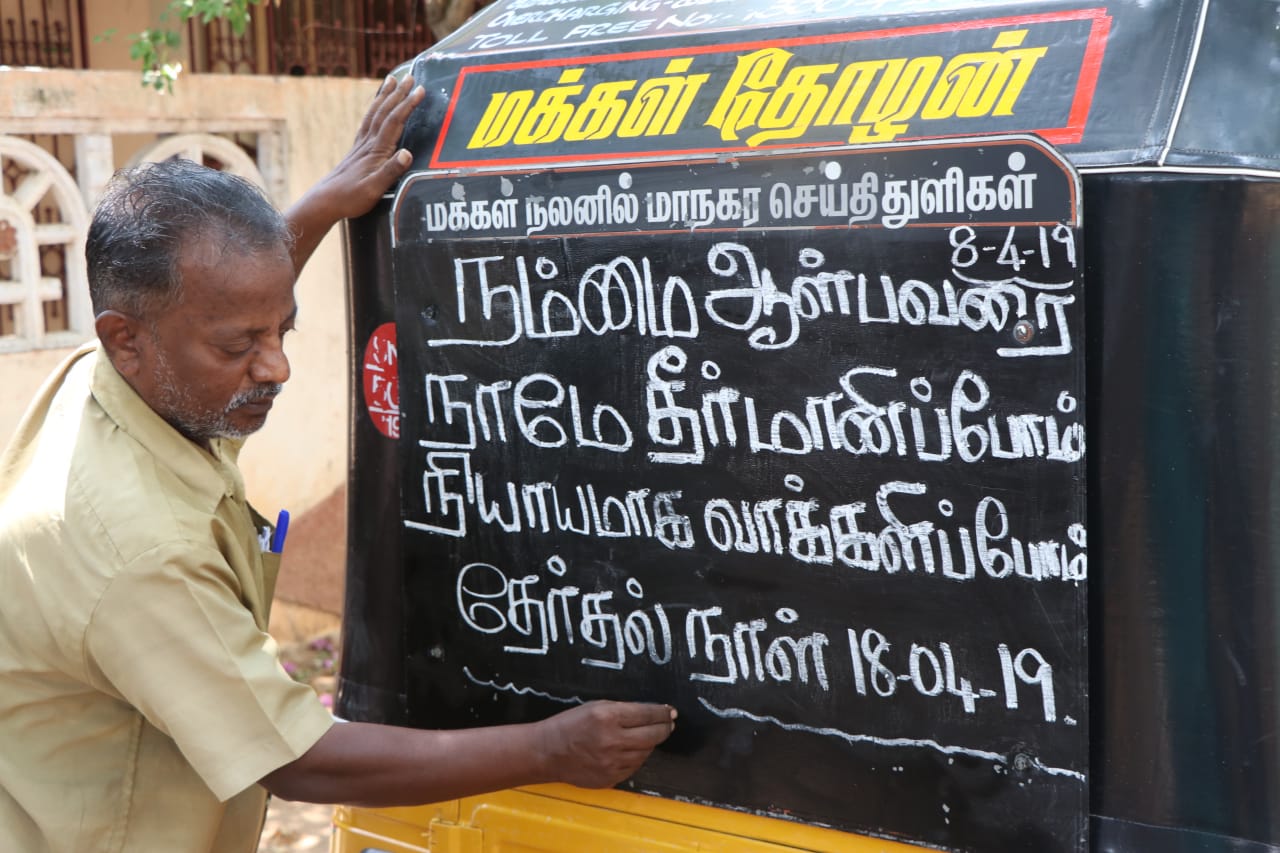 OVERCHARGING
TOLL FREE No:-
மக்கள் தோழன்
மக்கள் நலனில் மாநகர செய்தி துளிகள்
8-4-19
நம்மை ஆள்பவரை
நாமே தீர்மானிப்போம்
நியாயமாக வாக்களிப்போம்
தேர்தல் நாள் 18-04-19.